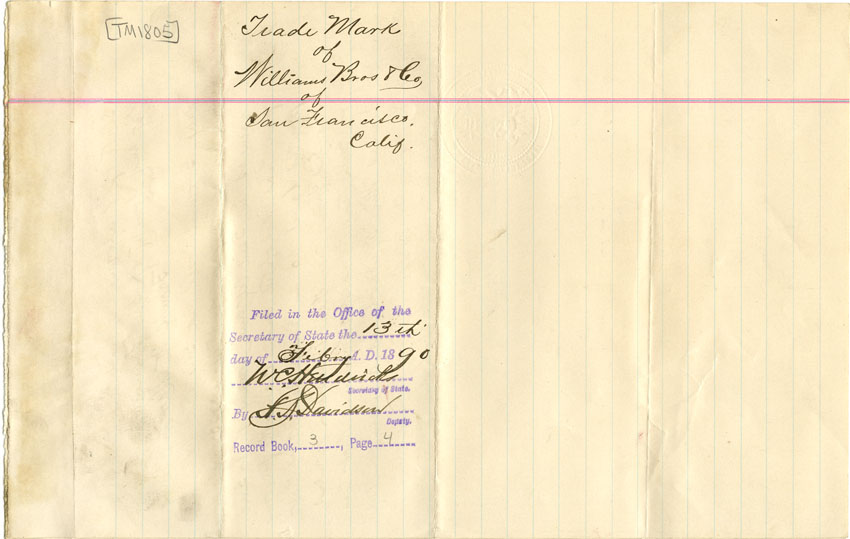 [TM1805]
Trade Mark
of
Williams Bros & Co
of
San Francisco.
Calif.
Filed in the Office of the
Secretary of State the 13th
day of Feb'ry A. D. 1890
W C Hendricks
Secretary of State.
By Davidson
Deputy.
Record Book, 3, Page 4